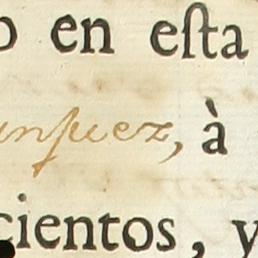 o en eſta
anjuez, à
cientos, y